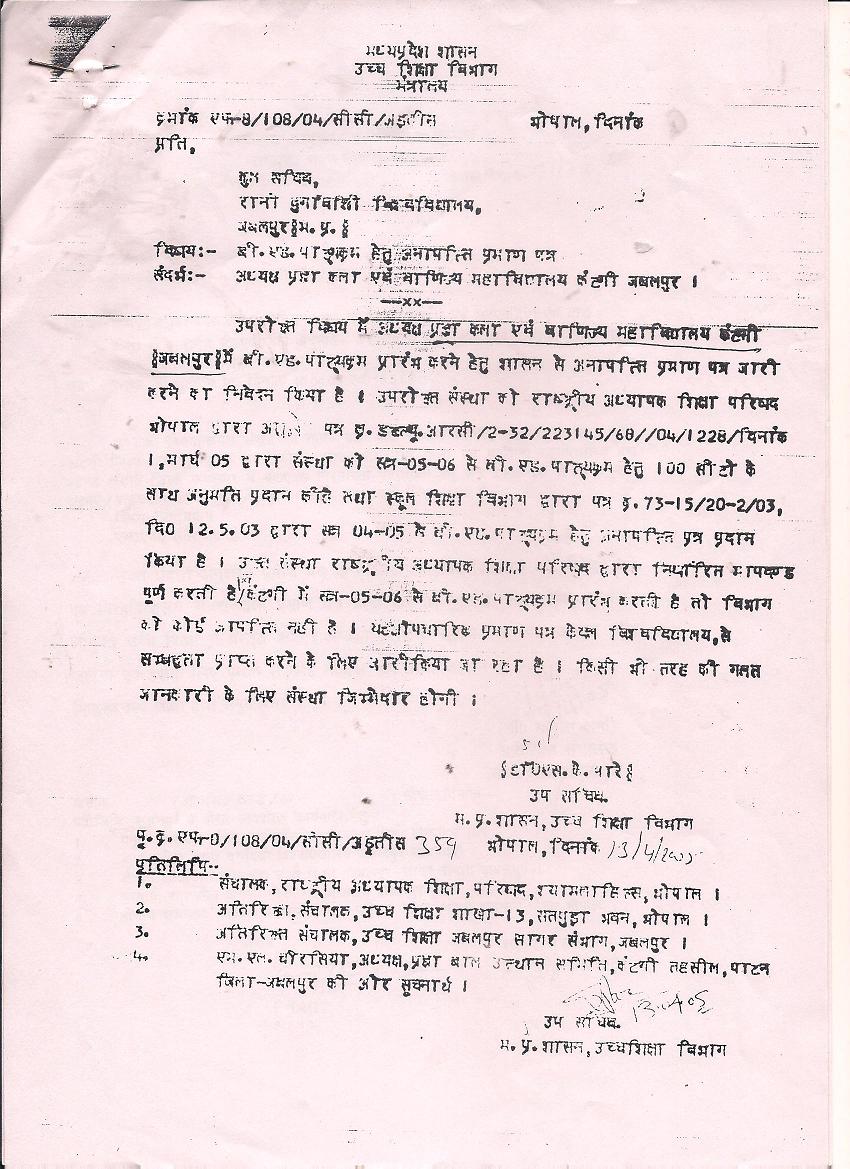 मध्यप्रदेश शासन
उच्च शिक्षा विभाग
मंत्रालय
क्रमांक एफ-8/108/04/सीसी/अड़तीस भोपाल, दिनांक
प्रति,
कुल सचिव,
रानी दुर्गावती विश्वविद्यालय,
जबलपुर §म.प्र.§
विषय:- बी.एड.पाठ्यक्रम हेतु अनापत्ति प्रमाण पत्र
संदर्भ:- अध्यक्ष प्रज्ञा कला एवं वाणिज्य महाविद्यालय कंटगी जबलपुर ।
—xx—
उपरोक्त विषय में अध्यक्ष प्रज्ञा कला एवं वाणिज्य महाविद्यालय कंटगी
§जबलपुर§में बी.एड.पाठ्यक्रम प्रारंभ करने हेतु शासन से अनापत्ति प्रमाण पत्र जारी
करने का निवेदन किया है । उपरोक्त संस्था को राष्ट्रीय अध्यापक शिक्षा परिषद
भोपाल द्वारा पत्र क्र.डब्ल्यू.आरसी/2-32/223145/68//04/1228/दिनांक
1,मार्च 05 द्वारा संस्था को सत्र-05-06 से बी.एड.पाठ्यक्रम हेतु 100 सीटो के
साथ अनुमति प्रदान की है तथा स्कूल शिक्षा विभाग द्वारा पत्र क्र.73-15/20-2/03,
दि0 12.5.03 द्वारा सत्र 04-05 से बी.एड.पाठ्यक्रम हेतु अनापत्ति पत्र प्रदाम
किया है । उक्त संस्था राष्ट्रीय अध्यापक शिक्षा परिषद द्वारा निर्धारित मापदण्ड
पूर्ण करती है/कंटगी में सत्र-05-06 से बी.एड.पाठ्यक्रम प्रारंभ करती है तो विभाग
को कोई आपत्ति नहीं है । यह औपचारिक प्रमाण पत्र केवल विश्वविद्यालय,से
सम्बद्धता प्राप्त करने के लिए जारी किया जा रहा है । किसी भी तरह की गलत
जानकारी के लिए संस्था जिम्मेदार होगी ।
§डा0एस.के.पारे§
उप सचिव.
म.प्र.शासन,उच्च शिक्षा विभाग
पृ.क्र.एफ-8/108/04/सीसी/अड़तीस 359 भोपाल,दिनांक 13/4/2005
प्रतिलिपि--
1. संचालक,राष्ट्रीय अध्यापक शिक्षा,परिषद,श्यामलाहिल्स,भोपाल ।
2. अतिरिक्त,संचालक,उच्च शिक्षा शाखा-13,सतपुड़ा भवन,भोपाल ।
3. अतिरिक्त संचालक,उच्च शिक्षा जबलपुर सागर संभाग,जबलपुर ।
4. एम.एल.चौरसिया,अध्यक्ष,प्रज्ञा बाल उत्थान समिति,कंटगी तहसील,पाटन
जिला-जबलपुर की ओर सूचनार्थ ।
उप सचिव.
म.प्र.शासन,उच्चशिक्षा विभाग